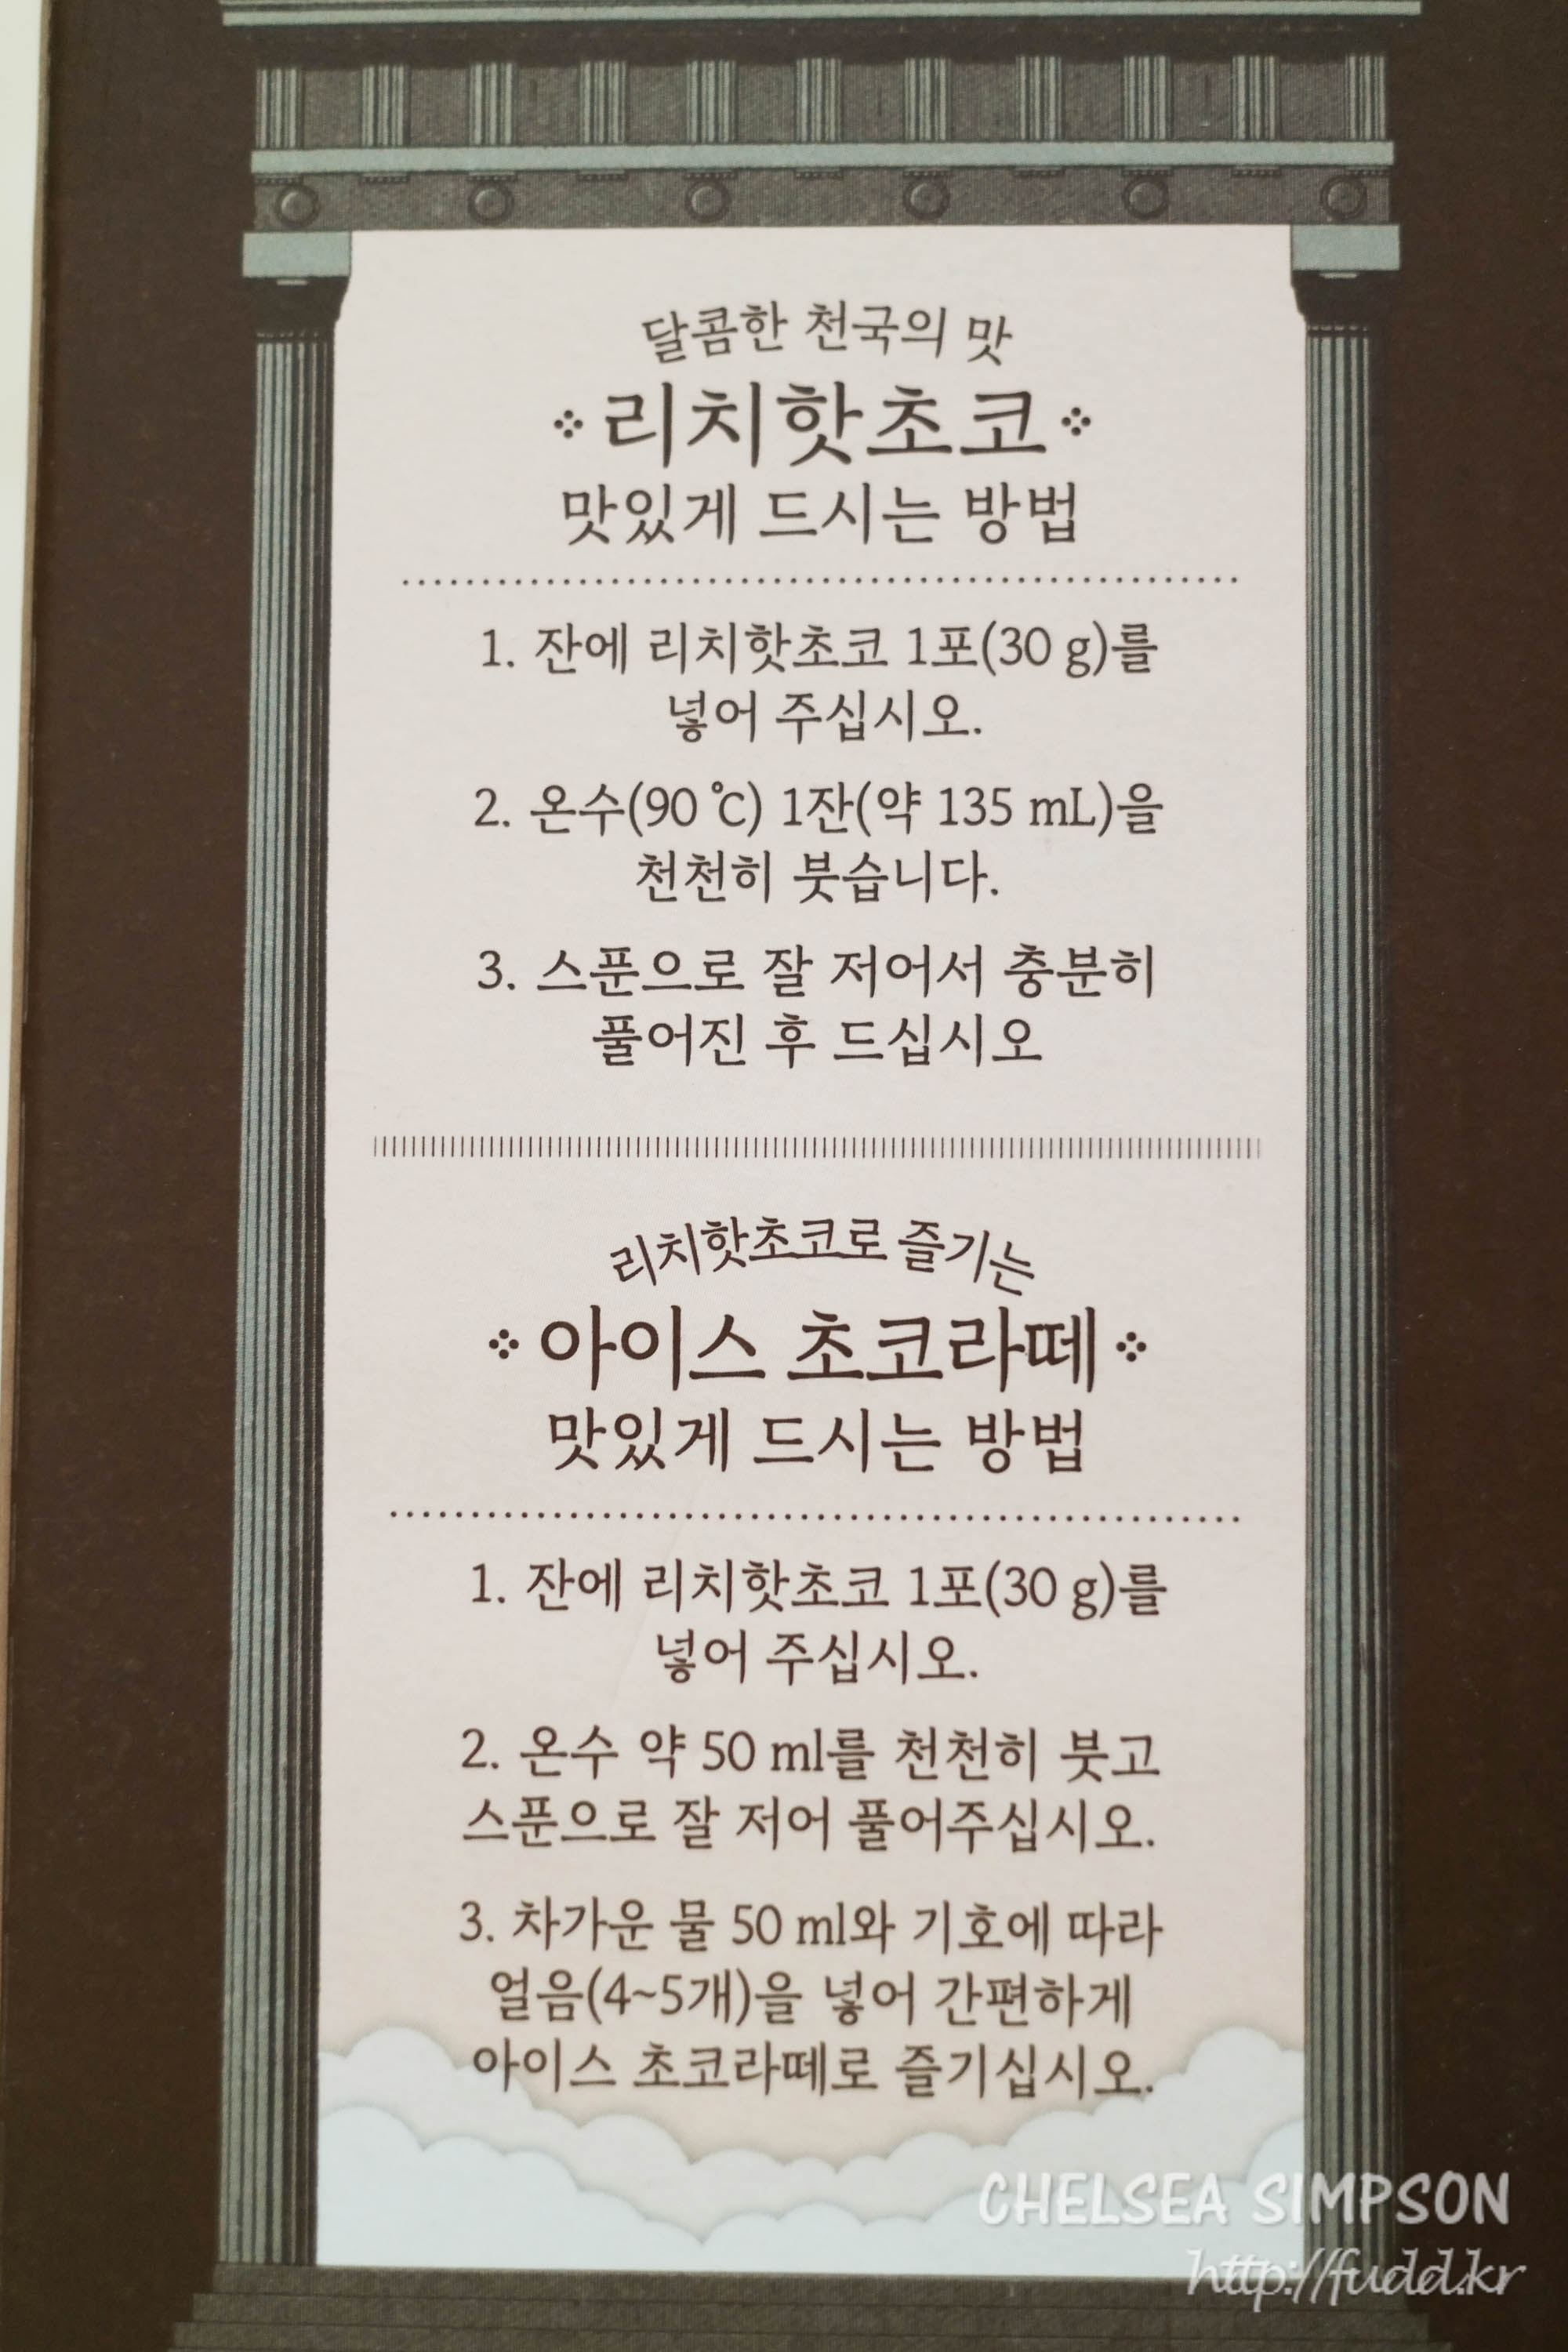 달콤한 천국의 맛
리치핫초코
맛있게 드시는 방법
1. 잔에 리치핫초코 1포(30 g)를
넣어 주십시오.
2. 온수(90 ℃) 1잔(약 135 mL)을
천천히 붓습니다.
3. 스푼으로 잘 저어서 충분히
풀어진 후 드십시오
리치핫초코로 즐기는
아이스 초코라떼
맛있게 드시는 방법
1. 잔에 리치핫초코 1포(30 g)를
넣어 주십시오.
2. 온수 약 50 ml를 천천히 붓고
스푼으로 잘 저어 풀어주십시오.
3. 차가운 물 50 ml와 기호에 따라
얼음(4~5개)을 넣어 간편하게
아이스 초코라떼로 즐기십시오.
CHELSEA SIMPSON
http://fudd.kr